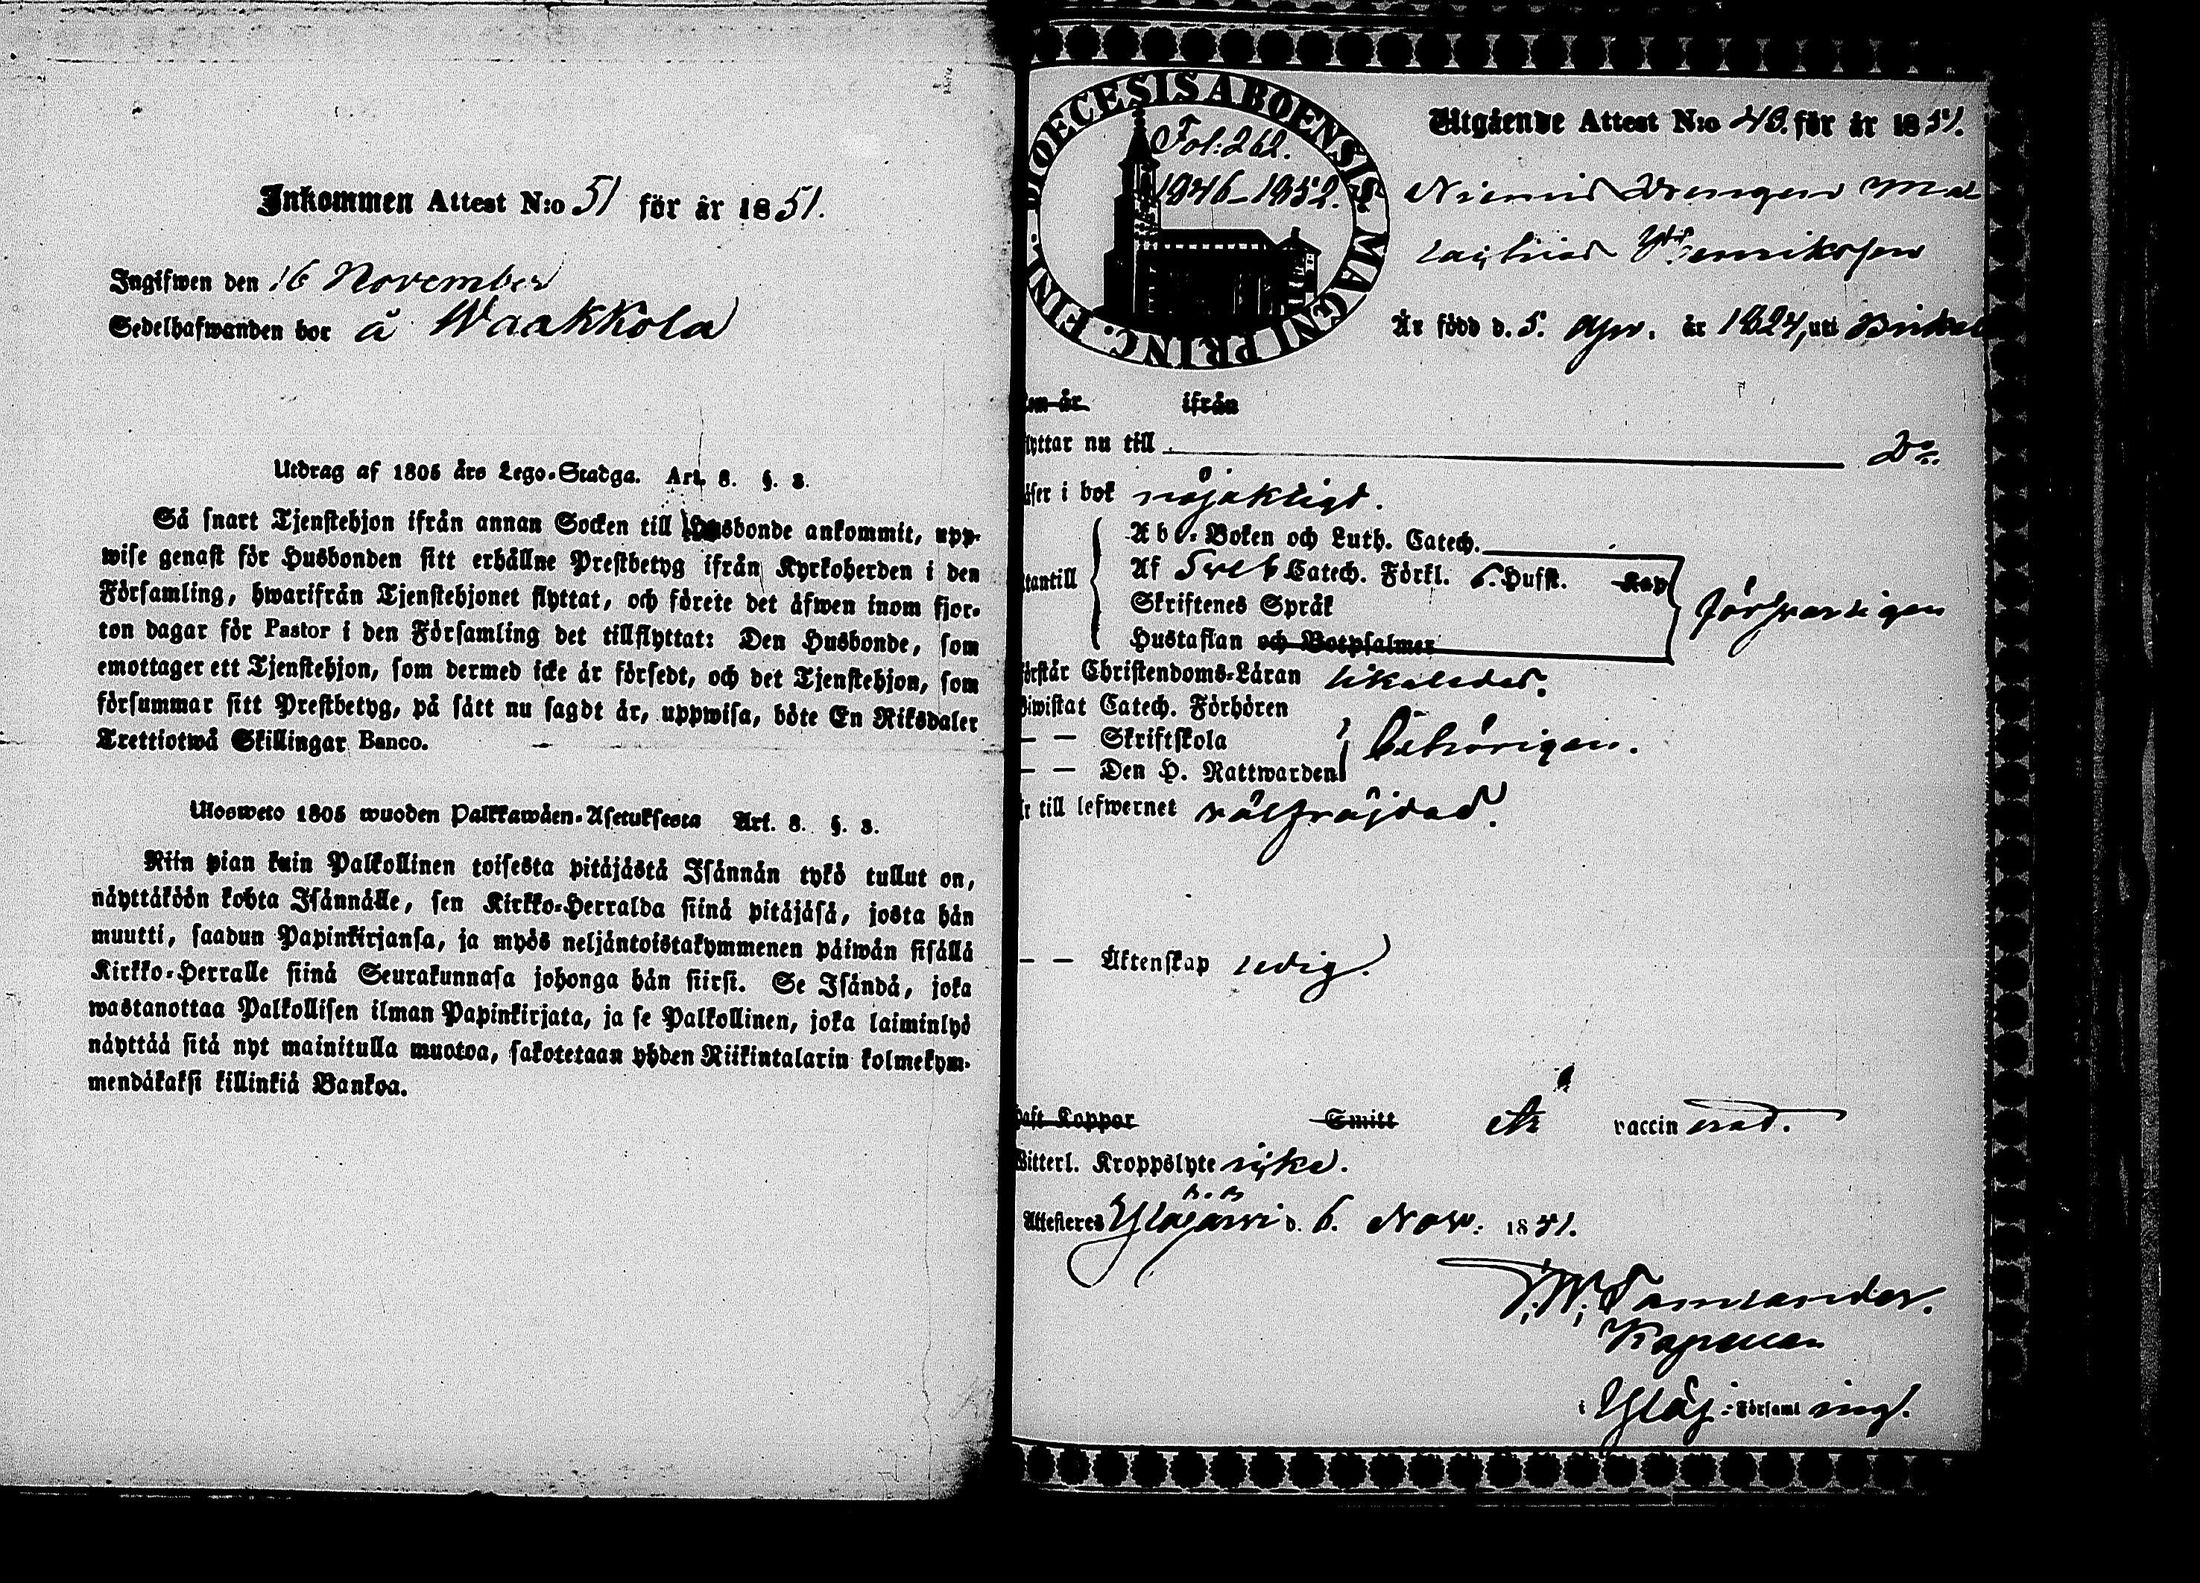 Inkommen Attest N:o 51 för år 1851.
Ingifwen den 16 November
Sedelhafwanden bor å Waakkola
Utdrag af 1805 års Lego-Stadga. Art. 8. §. 3.
Så snart Tjenstehjon ifrån annan Socken till Husbonde ankommit, upp-
wise genast för Husbonden sitt erhållne Prestbetyg ifrån Kyrkoherden i den
Församling, hwarifrån Tjenstehjonet flyttat, och förete det äfwen inom fjor-
ton dagar för Pastor i den Församling det tillflyttat: Den Husbonde, som
emottager ett Tjenstehjon, som dermed icke är försedt, och det Tjenstehjon, som
försummar sitt Prestbetyg, på sätt nu sagdt är, uppwisa, böte En Riksdaler
Trettiotwå Skillingar Banco.
Ulosweto 1805 wuoden Palkkawäen-Asetuksesta Art. 8. §. 3.
Niin pian kuin Palkollinen toisesta pitäjästä Isännän tykö tullut on,
näyttäköön kohta Isännälle, sen Kirkko-Herralda siinä pitäjäsä, josta hän
muutti, saadun Papinkirjansa, ja myös neljäntoistakymmenen päiwän sisällä
Kirkko-Herralle siinä Seurakunnasa johonga hän siirsi. Se Isändä, joka
wastanottaa Palkollisen ilman Papinkirjata, ja se Palkollinen, joka laiminlyö
näyttää sitä nyt mainitulla muotoa, sakotetaan yhden Riikintalarin kolmekym-
mendäkaksi killinkiä Bankoa.
DIOECESIS ABOENSIS MAGNI PRINC. FINL.
Fol: 262.
1846-1852.
Utgående Attest N:o 48. för år 1851.
Drengen
Henriksson
Är född d. 5. Apr. år 1824, uti
om år ifrån
flyttar nu till Do.
läser i bok nöjaktigt.
utantill
Abc-Boken och Luth. Catech.
Af Sveb Catech. Förkl. 6. Hufst. Kap
Skriftenes Språk
Hustaflan och Botpsalmer
försvarligen
förstår Christendoms-Läran likaledes.
Biwistat Catech. Förhören
— — Skriftskola
— — Den H. Nattwarden
behörigen.
Är till lefwernet välfräjdad.
— — Äktenskap ledig.
haft Koppor Smitt är vaccinerad.
Witterl. Kroppslyte icke.
Attesteres Ylöjärvi d. 6. Nov. 1851.
Kapellan
i Ylöj: Församling.